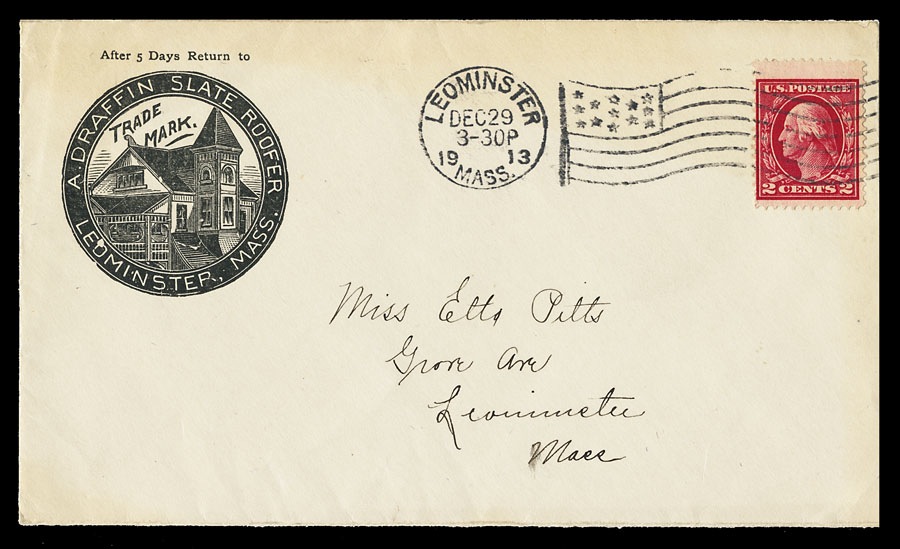 After 5 Days Return to
A. DRAFFIN SLATE ROOFER
LEOMINSTER, MASS.
TRADE
MARK.
LEOMINSTER
DEC 29
3-30P
19 13
MASS.
U.S. POSTAGE
2 CENTS 2
Miss Etta Pitts
Grove Ave
Leominster
Mass